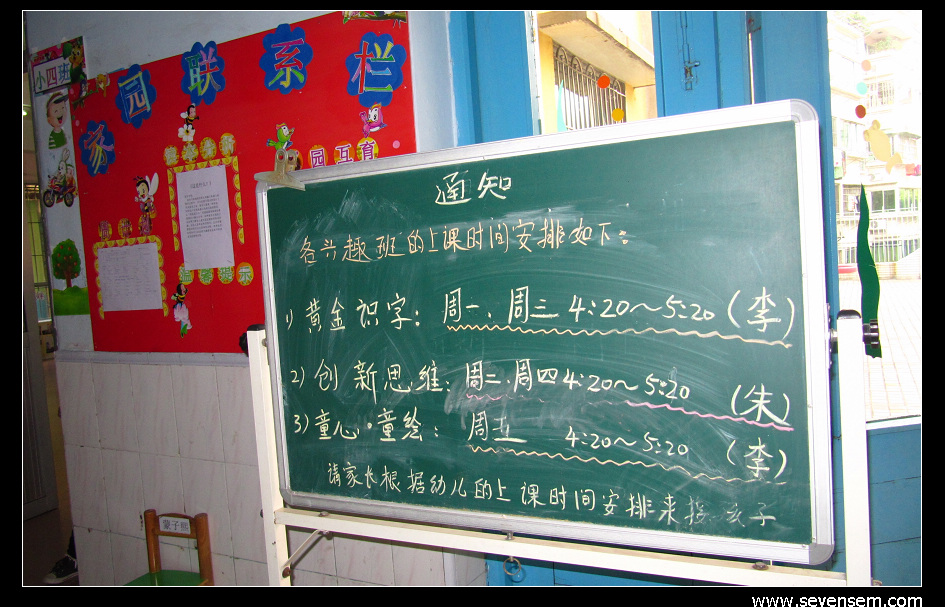 小四班
家园联系栏
园互育
温馨提示
通知
各兴趣班的上课时间安排如下：
1）黄金识字：周一、周三 4:20～5:20（李）
2）创新思维：周二、周四 4:20～5:20（朱）
3）童心·童绘：周五 4:20～5:20（李）
请家长根据幼儿的上课时间安排来接孩子
www.sevensem.com